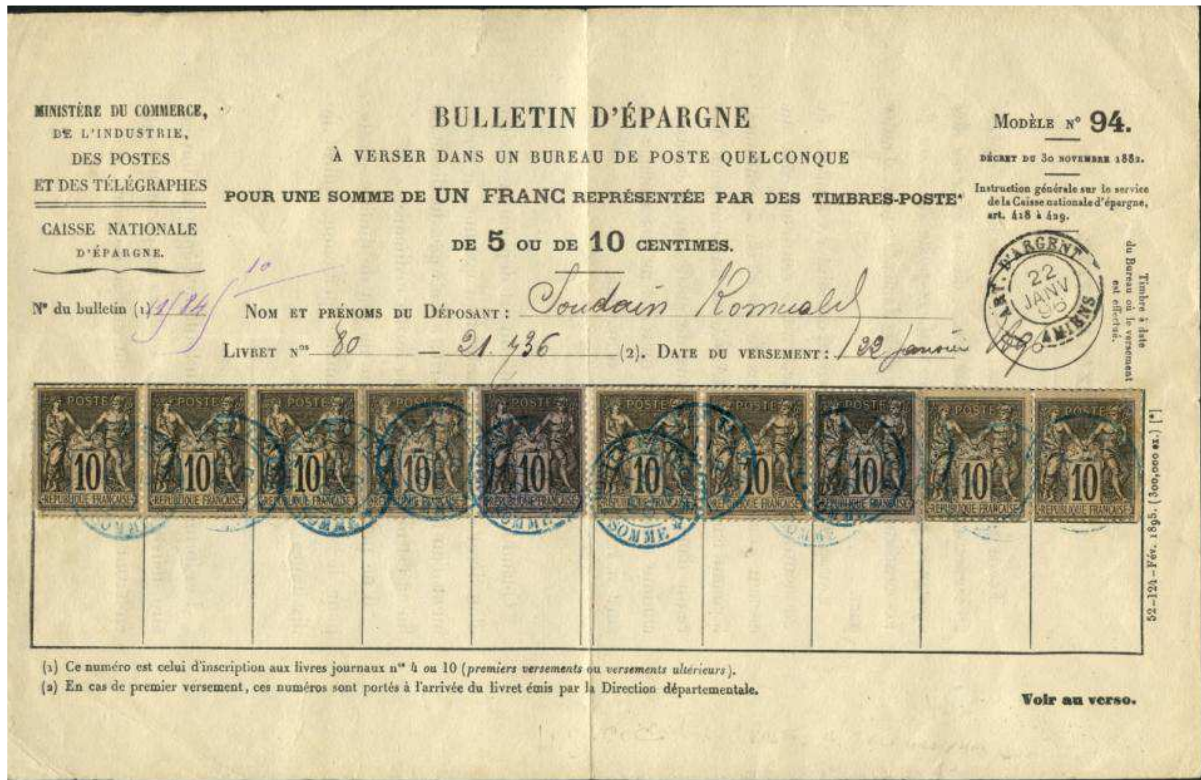 MINISTÈRE DU COMMERCE,
DE L'INDUSTRIE,
DES POSTES
ET DES TÉLÉGRAPHES
CAISSE NATIONALE
D'ÉPARGNE.
BULLETIN D'ÉPARGNE
À VERSER DANS UN BUREAU DE POSTE QUELCONQUE
POUR UNE SOMME DE UN FRANC REPRÉSENTÉE PAR DES TIMBRES-POSTE*
DE 5 OU DE 10 CENTIMES.
MODÈLE N° 94.
DÉCRET DU 30 NOVEMBRE 1882.
Instruction générale sur le service
de la Caisse nationale d'épargne,
art. 428 à 429.
Timbre à date
du Bureau où le versement
est effectué.
ART. D'ARGENT
22
JANV
96
AMIENS
N° du bulletin (1) 1/84/10
NOM ET PRÉNOMS DU DÉPOSANT : Soudain Romuald
LIVRET Nos 80 — 21.736 (2). DATE DU VERSEMENT : 22 janvier 1896
POSTE POSTE POSTE POSTE POSTE POSTE POSTE POSTE POSTE POSTE
10 10 10 10 10 10 10 10 10 10
REPUBLIQUE FRANÇAISE REPUBLIQUE FRANÇAISE REPUBLIQUE FRANÇAISE REPUBLIQUE FRANÇAISE REPUBLIQUE FRANÇAISE REPUBLIQUE FRANÇAISE REPUBLIQUE FRANÇAISE REPUBLIQUE FRANÇAISE REPUBLIQUE FRANÇAISE REPUBLIQUE FRANÇAISE
SOMME SOMME SOMME SOMME
52-124 – Fév. 1895. (300,000 ex.) [*]
(1) Ce numéro est celui d'inscription aux livres journaux nos 4 ou 10 (premiers versements ou versements ultérieurs).
(2) En cas de premier versement, ces numéros sont portés à l'arrivée du livret émis par la Direction départementale.
Voir au verso.